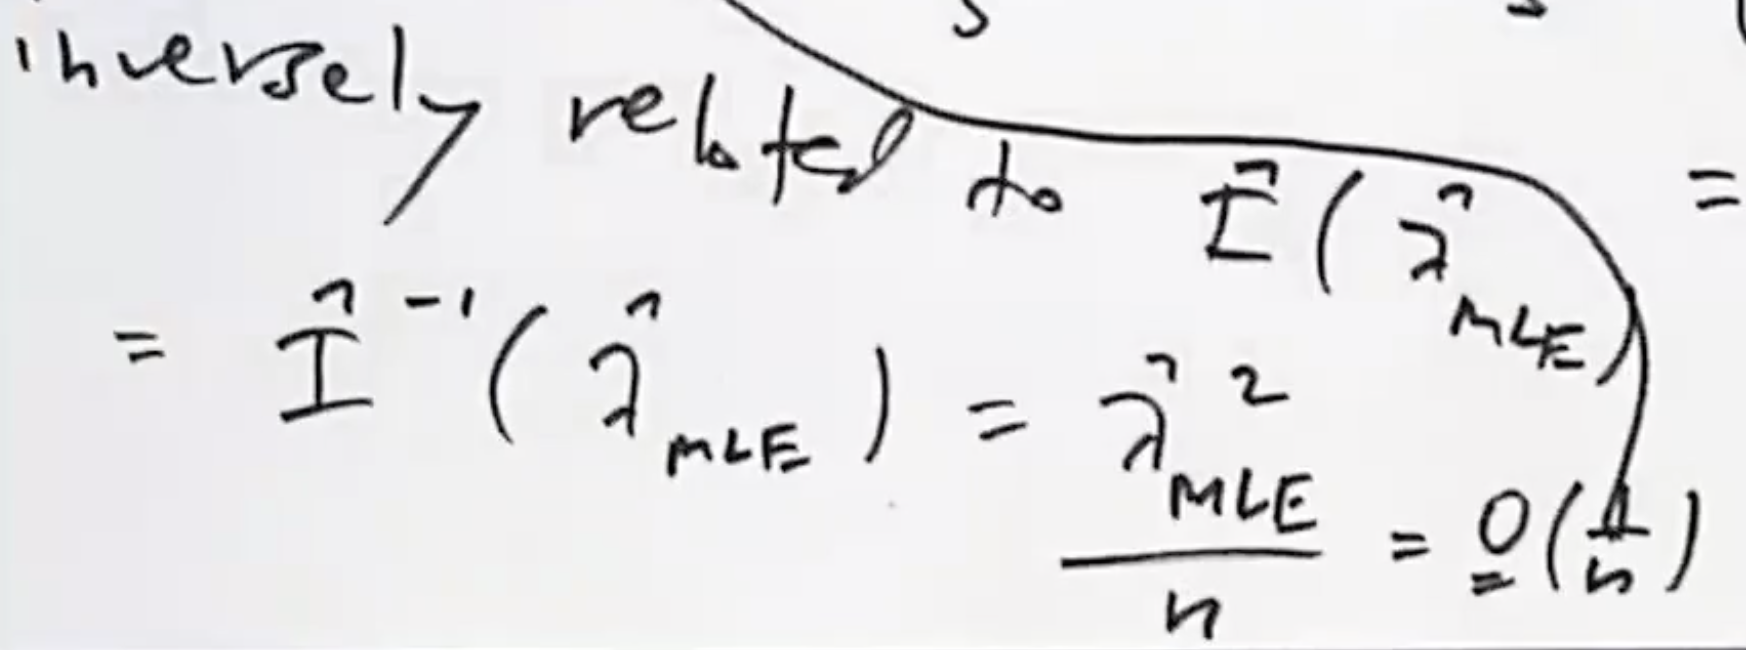 inversely related to Î(λ̂_MLE) =
= Î⁻¹(λ̂_MLE) = λ̂²_MLE / n = O(1/n)